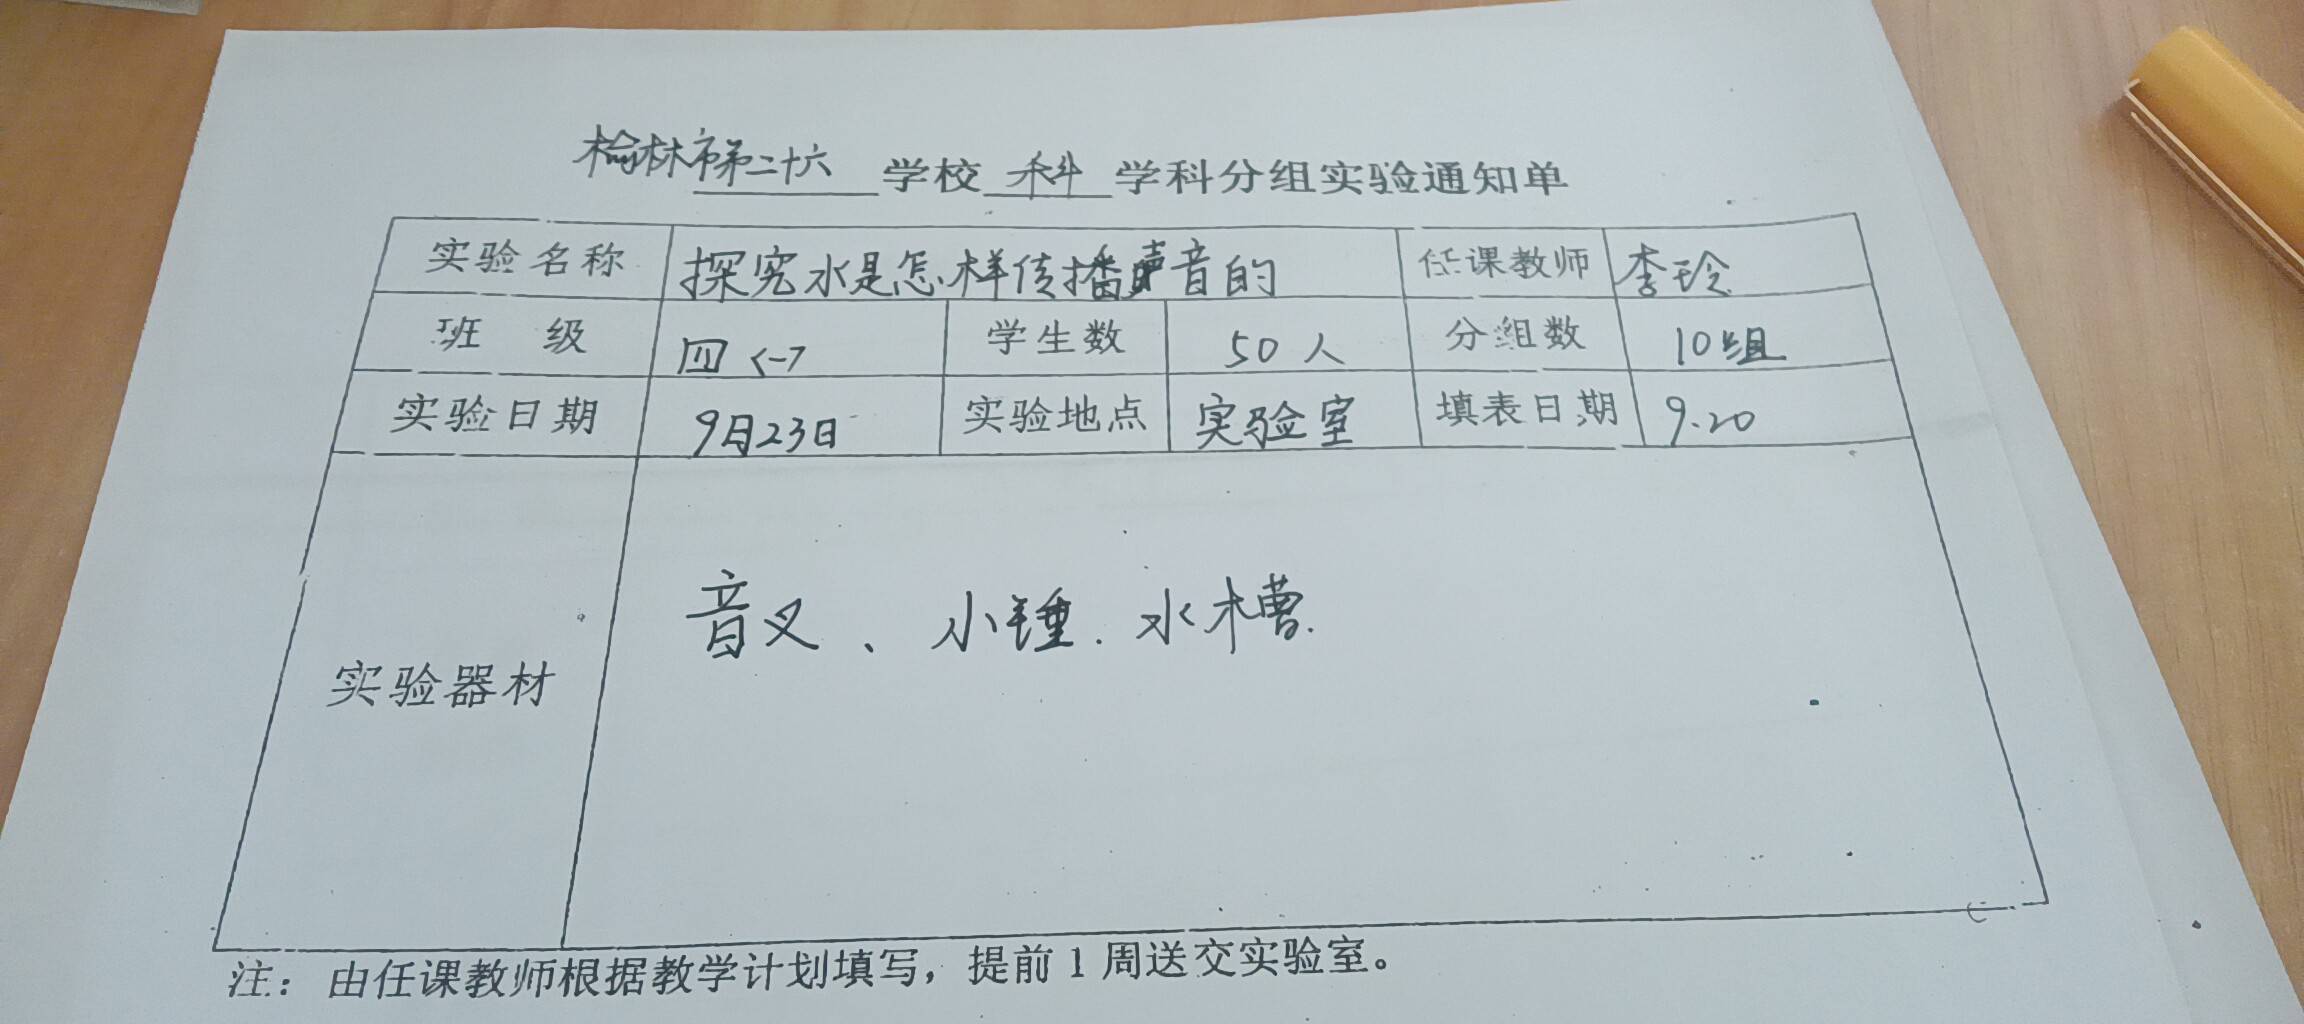 榆林市第二十六学校 科 学科分组实验通知单
实验名称 探究水是怎样传播声音的 任课教师 李玲
班级 四<一> 学生数 50人 分组数 10组
实验日期 9月23日 实验地点 实验室 填表日期 9.20
音叉、小锤.水槽.
实验器材
注：由任课教师根据教学计划填写，提前1周送交实验室。